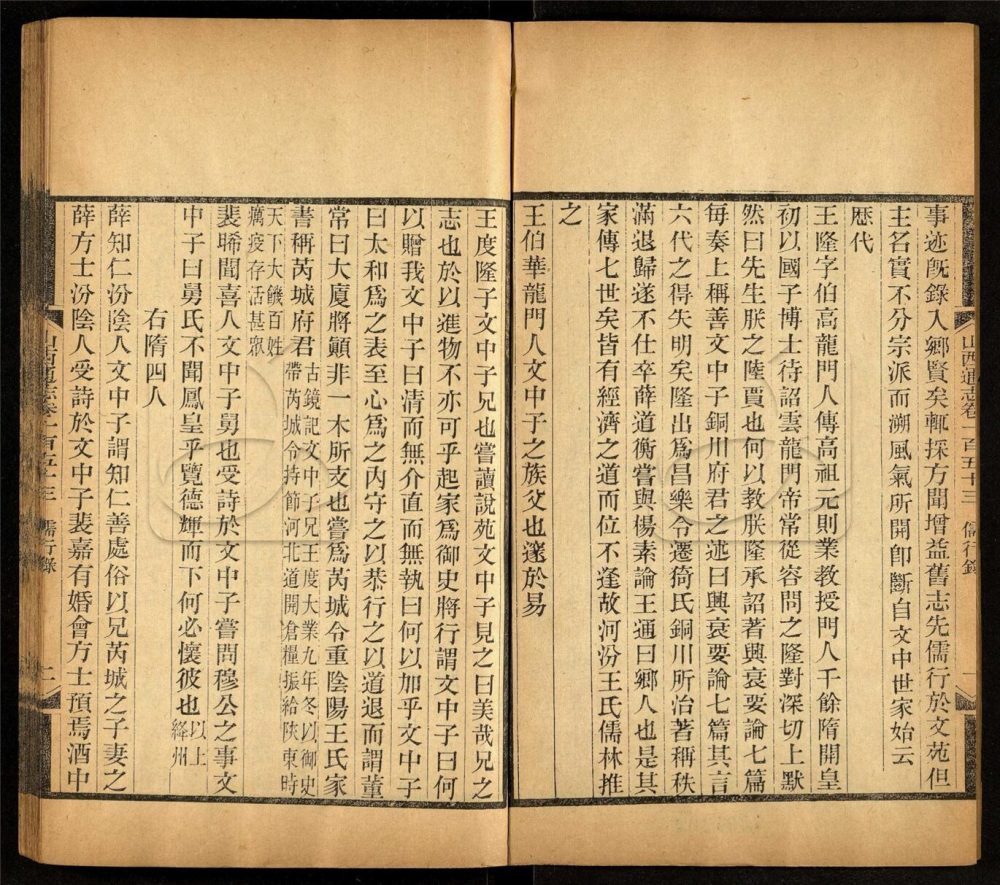 事迹旣錄入鄉賢矣輒採方聞增益舊志先儒行於文苑但
主名實不分宗派而溯風氣所開卽斷自文中世家始云
歴代
王隆字伯高龍門人傳高祖元則業教授門人千餘隋開皇
初以國子博士待詔雲龍門帝常從容問之隆對深切上默
然曰先生朕之陸賈也何以教朕隆承詔著興衰要論七篇
每奏上稱善文中子銅川府君之述曰興衰要論七篇其言
六代之得失明矣隆出爲昌樂令遷猗氏銅川所治著稱秩
滿退歸遂不仕卒薛道衡嘗與楊素論王通曰鄉人也是其
家傳七世矣皆有經濟之道而位不逢故河汾王氏儒林推
之
王伯華龍門人文中子之族父也邃於易
山西通志卷一百五十三 儒行錄 一
王度隆子文中子兄也嘗讀說苑文中子見之曰美哉兄之
志也於以進物不亦可乎起家爲御史將行謂文中子曰何
以贈我文中子曰清而無介直而無執曰何以加乎文中子
曰太和爲之表至心爲之內守之以恭行之以道退而謂董
常曰大厦將顚非一木所支也嘗爲芮城令重陰陽王氏家
書稱芮城府君古鏡記文中子兄王度大業九年冬以御史
帶芮城令持節河北道開倉糧振給陜東時
天下大饑百姓
癘疫存活甚衆
裴晞聞喜人文中子舅也受詩於文中子嘗問穆公之事文
中子曰舅氏不聞鳳皇乎覽德輝而下何必懷彼也以上
絳州
右隋四人
薛知仁汾陰人文中子謂知仁善處俗以兄芮城之子妻之
薛方士汾陰人受詩於文中子裴嘉有婚會方士預焉酒中
山西通志卷一百五十三 儒行錄 二